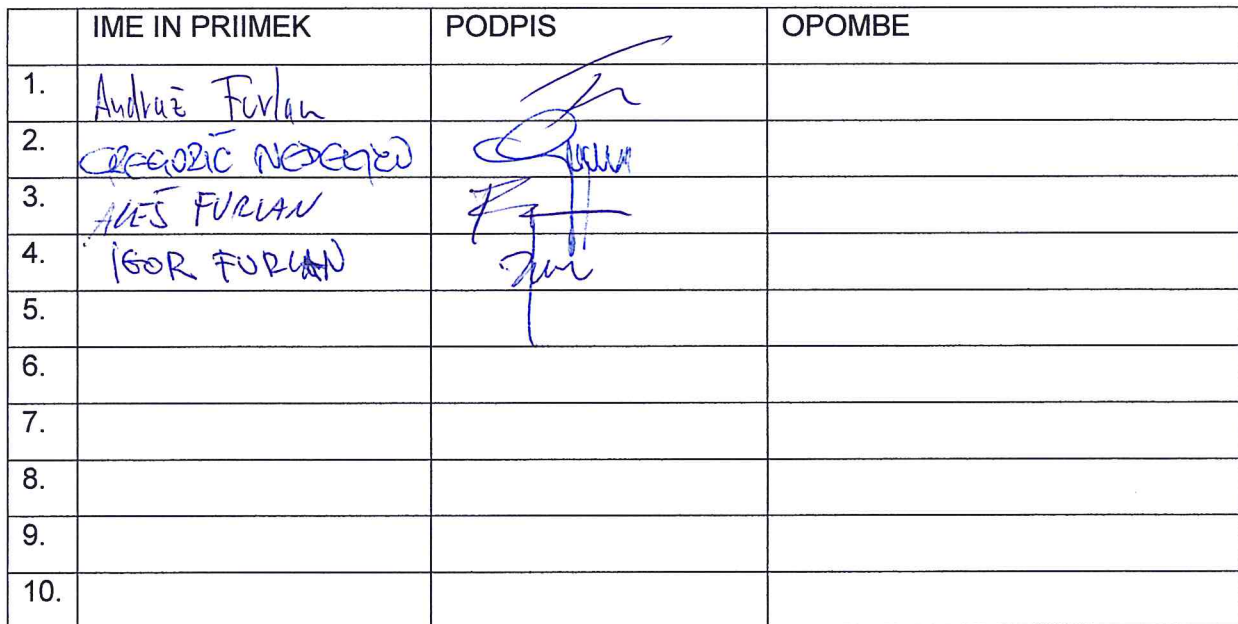 IME IN PRIIMEK PODPIS OPOMBE
1. Andraž Furlan
2. GREGORIČ NEDELJKO
3. ALEŠ FURLAN
4. IGOR FURLAN
5.
6.
7.
8.
9.
10.